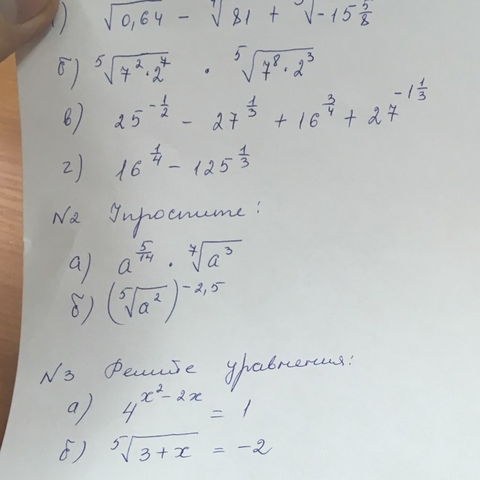 √0,64 − ⁴√81 + ³√-15 5/8
б) ⁵√7² · 2⁷ · ⁵√7⁸ · 2³
в) 25^(-1/2) − 27^(1/3) + 16^(3/4) + 27^(-1 1/3)
г) 16^(1/4) − 125^(1/3)
N2 Упростите:
а) a^(5/14) · ⁷√a³
б) (⁵√a²)^(-2,5)
N3 Решите уравнения:
а) 4^(x²-2x) = 1
б) ⁵√3+x = -2